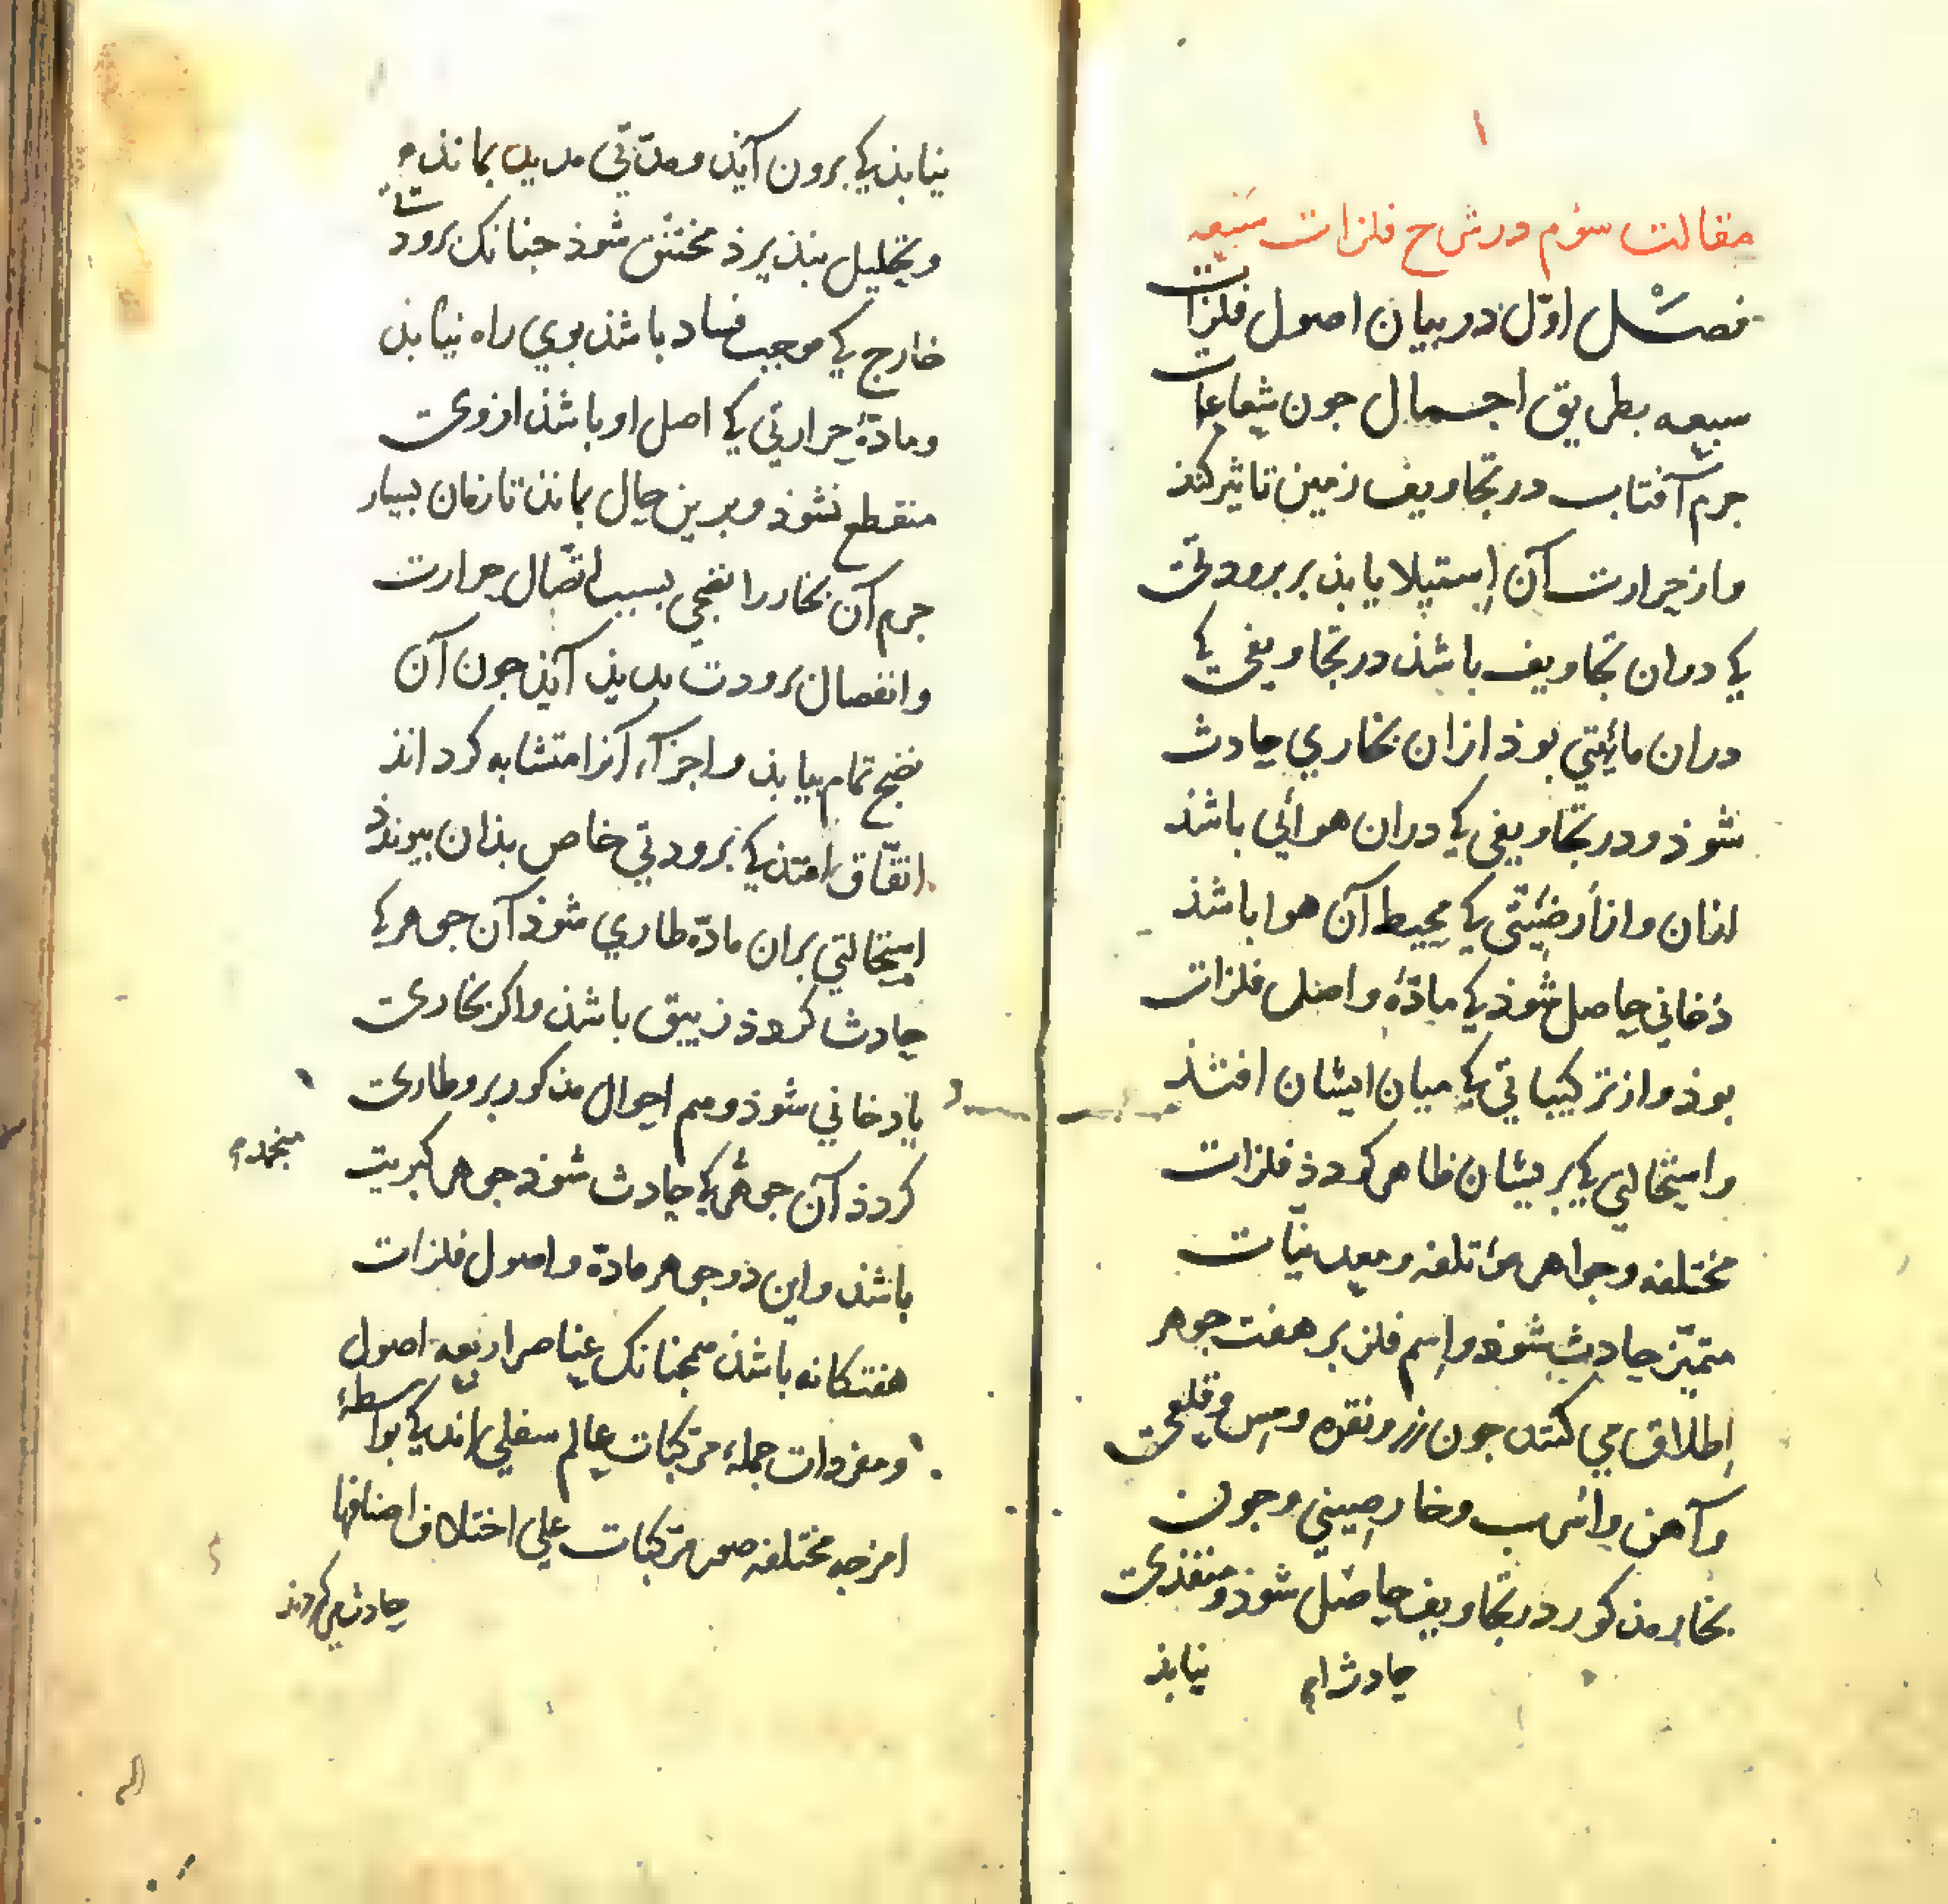 ۱
مقالت سوم در شرح فلزات سبعه
فصل اوّل در بیان اصول فلزات
سبعه بطریق اجمال جون شعاعات
جرم آفتاب در تجاویف زمین تاثیر کند
و از حرارت آن استیلا یابذ بر برودتی
کی دران تجاویف باشذ در تجاویفی کی
دران مائیتی بوذ ازان بخاری حادث
شوذ و در تجاویفی کی دران هوائی باشذ
ازان و از أرضیّتی کی محیط آن هوا باشذ
دُخانی حاصل شوذ کی مادّهٔ و اصل فلزات
بوذ و از ترکیباتی کی میان ایشان افتذ
و استحالتی کی بریشان ظاهر کردذ فلزات
مختلفه و جواهر مؤتلفه و معدنیّات
متمیّز حادث شوذ و اسم فلز بر هفت جوهر
اطلاق می کنند جون زر و نقره و مس و قلعی
و آهن و اسرب و خارصینی و جون
بخار مذکور در تجاویف حاصل شوذ و منفذی
حادث ام
نیابذ
نیابذ کی برون آیذ و مدّتی مدید بماند و
و تحلیل نبذیرذ مختنق شوذ جنانک برودت
خارج کی موجب فساد باشذ بوی راه نیابذ
و مادّهٔ حرارتی کی اصل او باشذ ازوی
منقطع نشوذ و برین حال بماند تا زمان بسیار
جرم آن بخار را نضجی بسبب اتّصال حرارت
و انفصال برودت بدیذ آیذ جون آن
نضج تمام بیابذ و اجزآء آنرا متشابه کرداند
اتّفاق افتذ کی برودتی خاص بذان بیوندذ
استحالتی بران مادّه طاری شوذ آن جوهر کی
حادث کردذ زیبق باشذ و اکر بخاری
یا دخانی شوذ و هم احوال مذکور برو طاری
کردذ آن جوهر کی حادث شوذ جوهر کبریت
منجمد
باشذ و این دو جوهر مادّه و اصول فلزات
هفتکانه باشذ همجنانک عناصر اربعه اصول
و مفردات جملهٔ مرکّبات عالم سفلی اند کی بواسطهٔ
امزجه مختلفه صور مرکّبات علی اختلاف اصنافها
حادث می کردند